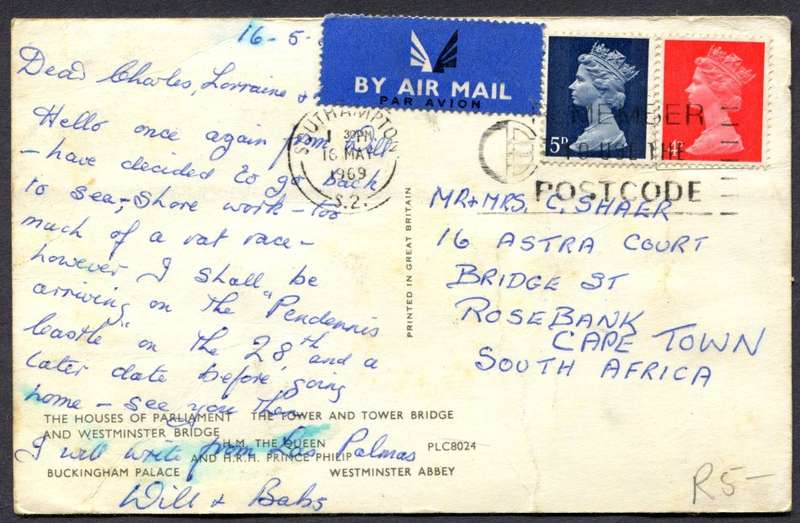 16-5-
BY AIR MAIL
PAR AVION
5P
4P
SOUTHAMPTON
PM
16 MAY
1969
S.2.
REMEMBER
TO USE THE
POSTCODE
Dear Charles, Lorraine +
Hello once again from
- have decided to go back
to sea - shore work - too
much of a rat race -
however I shall be
arriving on the "Pendennis
Castle" on the 28th and a
later date before going
home - see you then
I will write from Las Palmas
Will + Babs
PRINTED IN GREAT BRITAIN
MR+MRS. C. SHAER
16 ASTRA COURT
BRIDGE ST
ROSEBANK
CAPE TOWN
SOUTH AFRICA
THE HOUSES OF PARLIAMENT THE TOWER AND TOWER BRIDGE
AND WESTMINSTER BRIDGE
H.M. THE QUEEN PLC8024
AND H.R.H. PRINCE PHILIP
BUCKINGHAM PALACE WESTMINSTER ABBEY
R5-